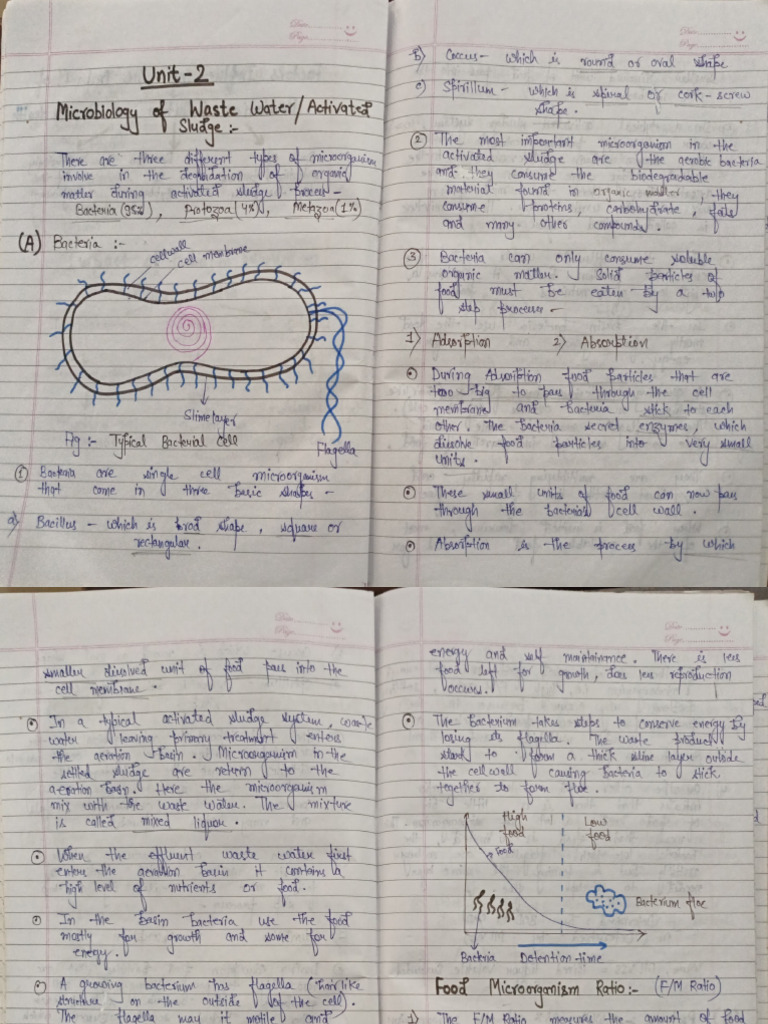 Date
Page
Unit-2
Microbiology of Waste Water/Activated
Sludge:-
There are three different types of microorganism
involve in the degradation of organic
matter during activated sludge process-
Bacteria(95%), Protozoa(4%), Metazoa(1%)
(A) Bacteria :-
cellwall
cell membrane
Slimelayer
Fig :- Typical Bacterial Cell
Flagella
① Bacteria are single cell microorganism
that come in three basic shapes-
a) Bacillus - which is brod shape, square or
rectangular.
Date
Page
b) Coccus- which is round or oval shape
c) Spirillum - which is spiral or cork-screw
shape.
② The most important microorganism in the
activated sludge are the aerobic bacteria
and they consume the biodegradable
material found in organic matter, they
consume proteins, carbohydrate, fats
and many other compounds.
③ Bacteria can only consume soluble
organic matter. Solid particles of
food must be eaten by a two
step processes-
1) Adsorption 2) Absorption
During Adsorption food particles that are
too big to pass through the cell
membrane and bacteria stick to each
other. The bacteria secret enzymes, which
dissolve food particles into very small
units.
These small units of food can now pass
through the bacterias cell wall.
Absorption is the process by which
Date
Page
smaller dissolved unit of food pass into the
cell membrane.
In a typical activated sludge system, waste
water leaving primary treatment enters
the aeration basin. Microorganism in the
settled sludge are return to the
aeration basin. Here the microorganism
mix with the waste water. The mixture
is called mixed liquor.
When the effluent waste water first
enters the aeration basin it contains a
high level of nutrients or food.
In the basin bacteria use the food
mostly for growth and some for
energy.
A growing bacterium has flagella (hair like
structure on the outside of the cell).
The flagella may it motile and
Date
Page
energy and self maintainance. There is less
food left for growth, does less reproduction
occurs.
The bacterium takes steps to conserve energy by
losing its flagella. The waste product
start to form a thick slime layer outside
the cell wall causing bacteria to stick
together to form floc.
High
food
Low
food
Food
Bacterium floc
Bacteria
Detention time
Food Microorganism Ratio:- (F/M Ratio)
1) The F/M Ratio measures the amount of food